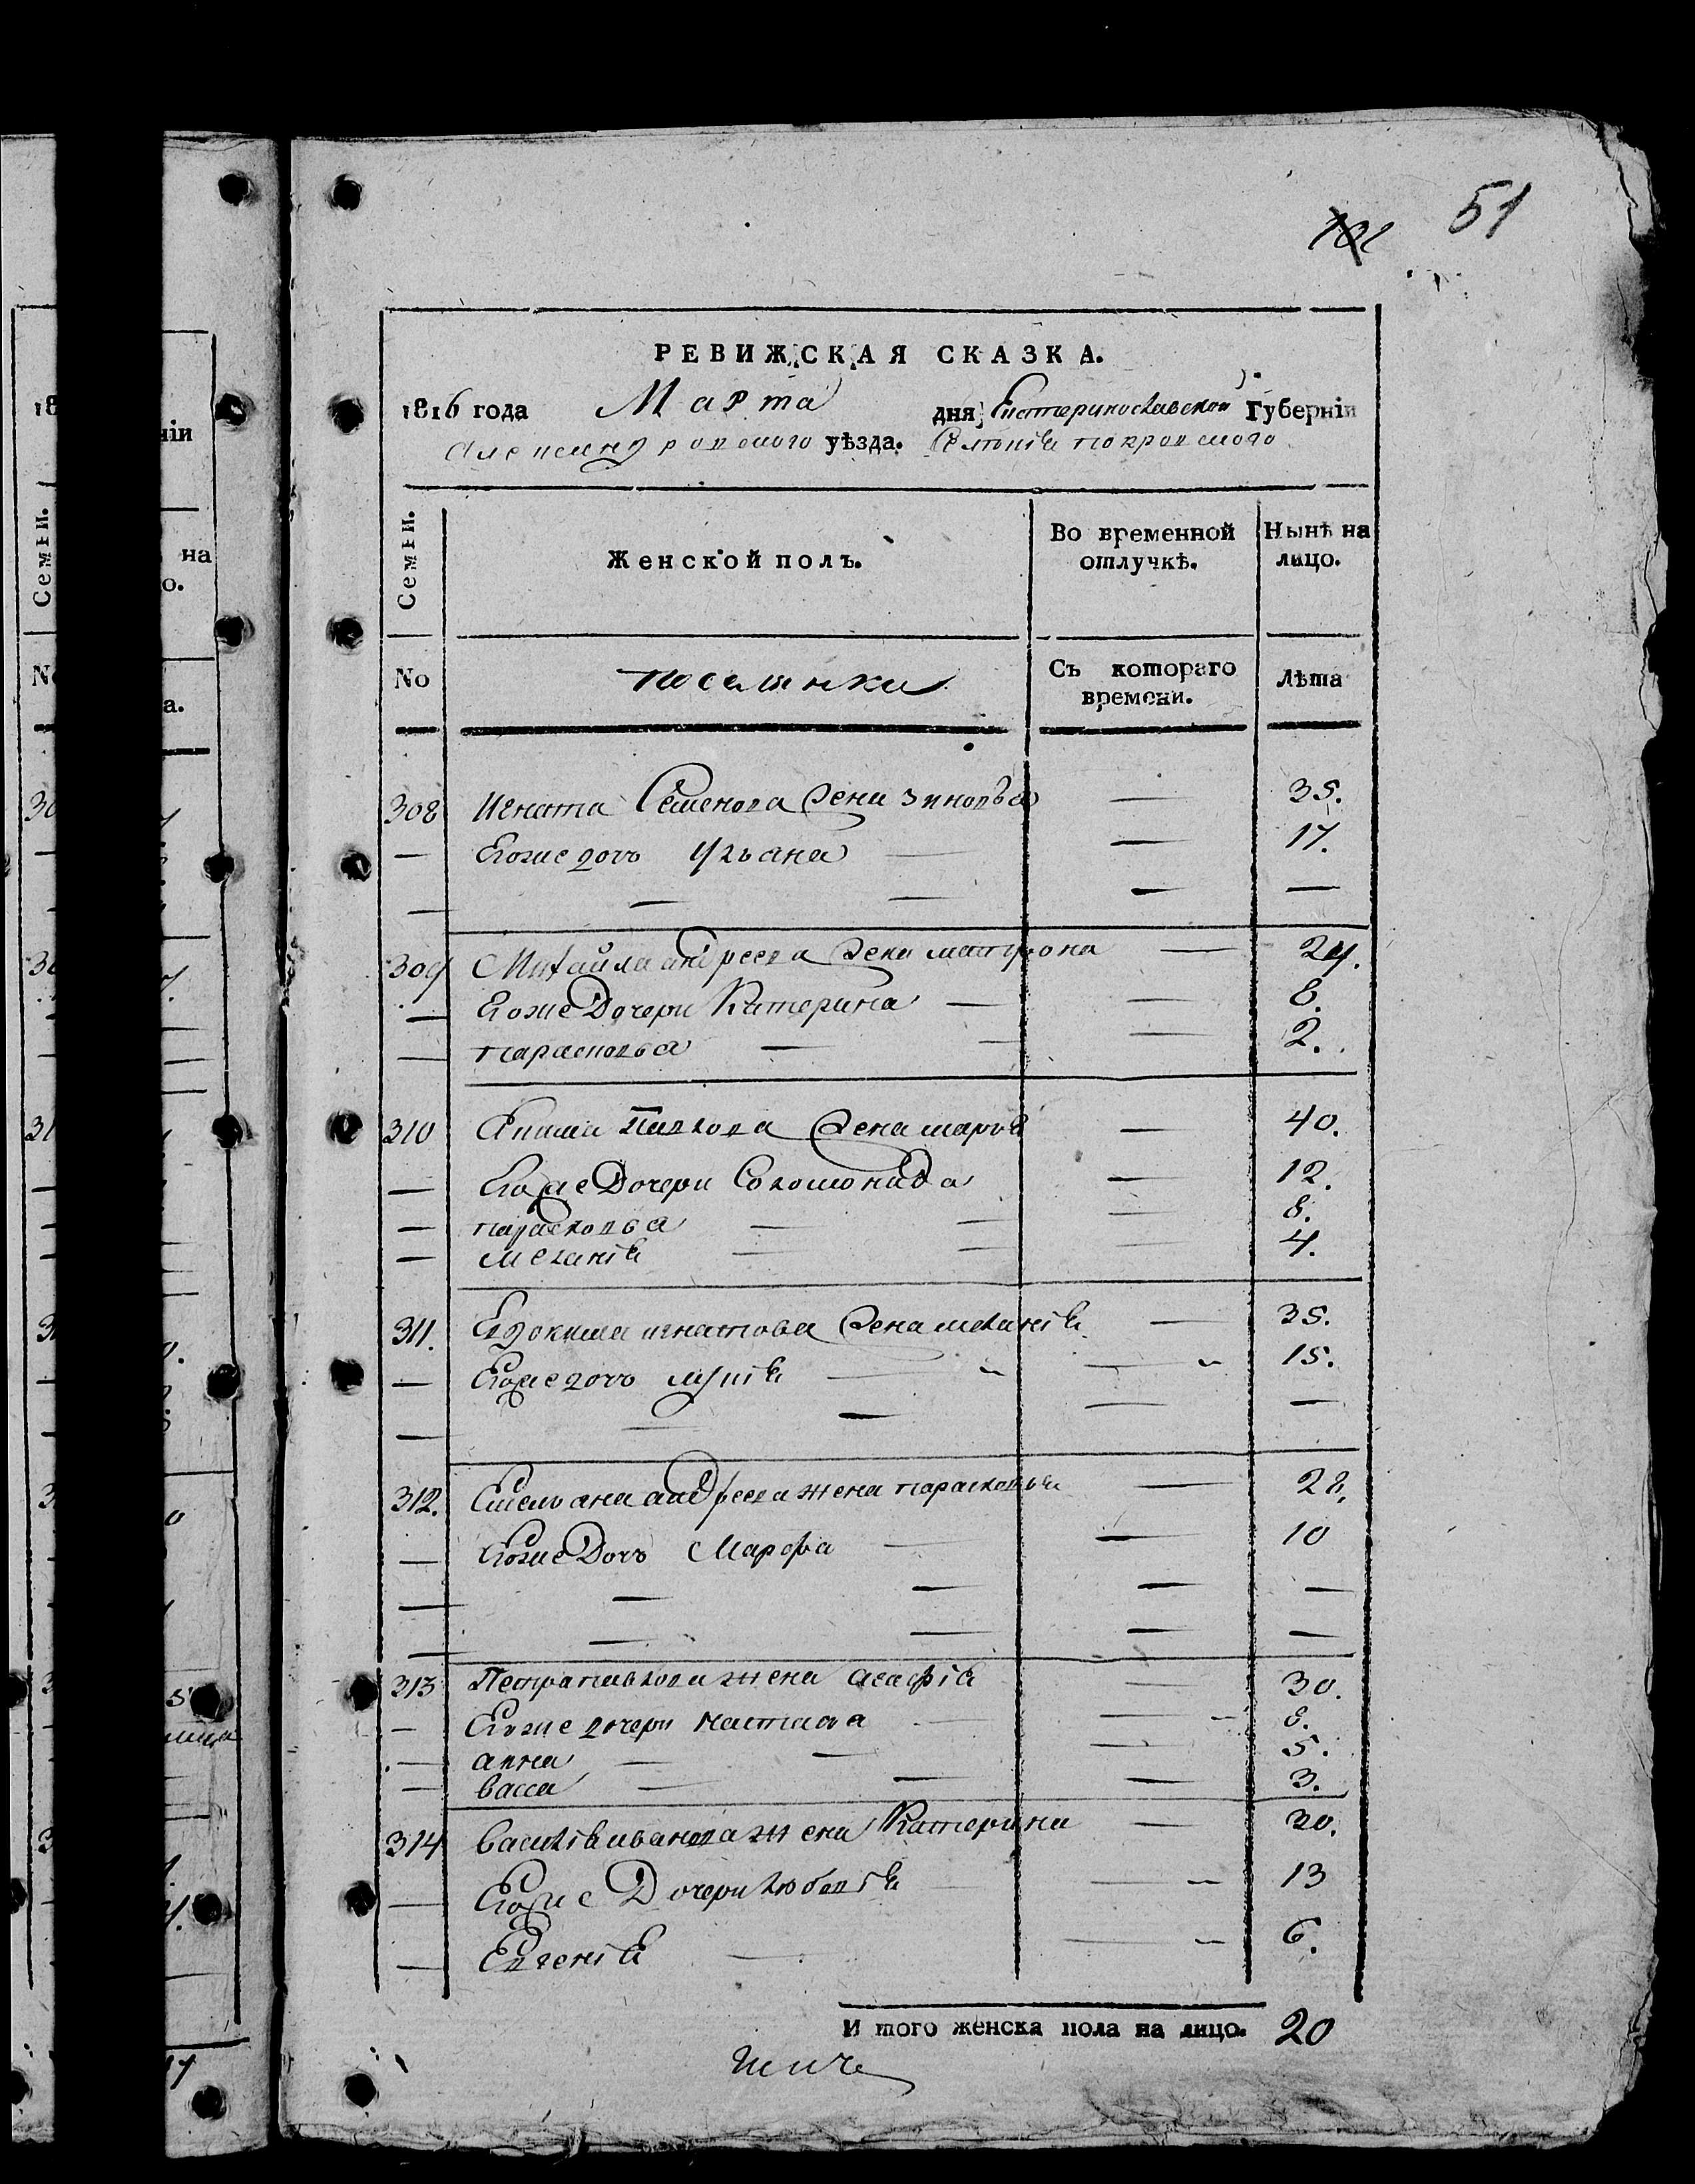 51
РЕВИЖСКАЯ СКАЗКА.
1816 года Марта дня Екатеринославской Губерніи
Александровского уѣзда. Селенія покровского
Семьи. Женской полъ. Во временной отлучкѣ. Нынѣ на лицо.
No поселянки Съ котораго времени. Лѣта
308 Игната Семенова жена зиновья — 35.
— Егоже дочь Ульяна — — 17.
— — — — —
309 Михайла андреева жена матрона — 24.
— Егоже Дочери Катерина — — 8.
— парасковья — — — 2.
310 Павлова жена марфа — 40.
— Егоже Дочери Соломонида — 12.
— парасковья — — — 8.
— меланія — — — 4.
311. Евдокима игнатова жена меланія — 35.
— Егоже дочь — — 15.
— — — — —
312. Емельяна андреева жена парасковья — 28.
— Егоже Дочь Марфа — — 10
— — — — —
— — — — —
313 Петра павлова жена агафія — 30.
— Егоже дочери настасья — — 8.
— анна — — — 5.
— васса — — — 3.
314 Василія иванова жена Катерина — 30.
— Егоже Дочери любовія — 13
— Евгенія — — 6.
И того женска пола на лицо. 20